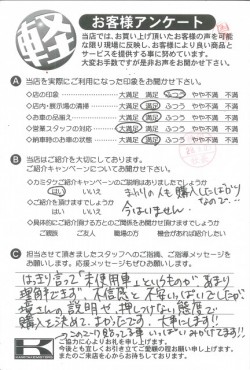 軽
お客様アンケート
当店では、お買い上げ頂いたお客様の声を可能
な限り現場に反映し、お客様により良い商品と
サービスを提供する事に努めています。
大変お手数ですが是非お声をお聞かせ下さい。
A 当店を実際にご利用になった印象をお聞かせ下さい。
◇店の印象 大満足 満足 ふつう やや不満 不満
◇店内・展示場の清掃 大満足 満足 ふつう やや不満 不満
◇お車の品揃え 大満足 満足 ふつう やや不満 不満
◇営業スタッフの対応 大満足 満足 ふつう やや不満 不満
◇納車時のお車の状態 大満足 満足 ふつう やや不満 不満
B 当店はご紹介を大切にしております。
ご紹介キャンペーンについてお聞かせ下さい。
◇カミタウンご紹介キャンペーンのご説明はありましたでしょうか
はい いいえ まわりの人も購入したばかり
◇ご紹介を頂けますでしょうか なので…!!
はい いいえ 今はいません…
◇具体的にご紹介頂ける方とのご関係をお聞かせ頂けますでしょうか
ご親族 ご友人 職場の方 機会があれば紹介したい
C 担当させて頂きましたスタッフへのご指摘、ご指導メッセージを
お願いします。応援メッセージもぜひお願いします。
はっきり言って「未使用車」というものが、あまり
理解できず、不信感と不安いっぱいでしたが
さんの説明や、押しつけない態度で
購入を決めて、よかったです。大事にします!!
ご協力に心よりお礼を申し上げます。
今後とも宜しくお引き立てご愛顧の程お願い申し上げます。
またのご来店を心からお待ちしております。